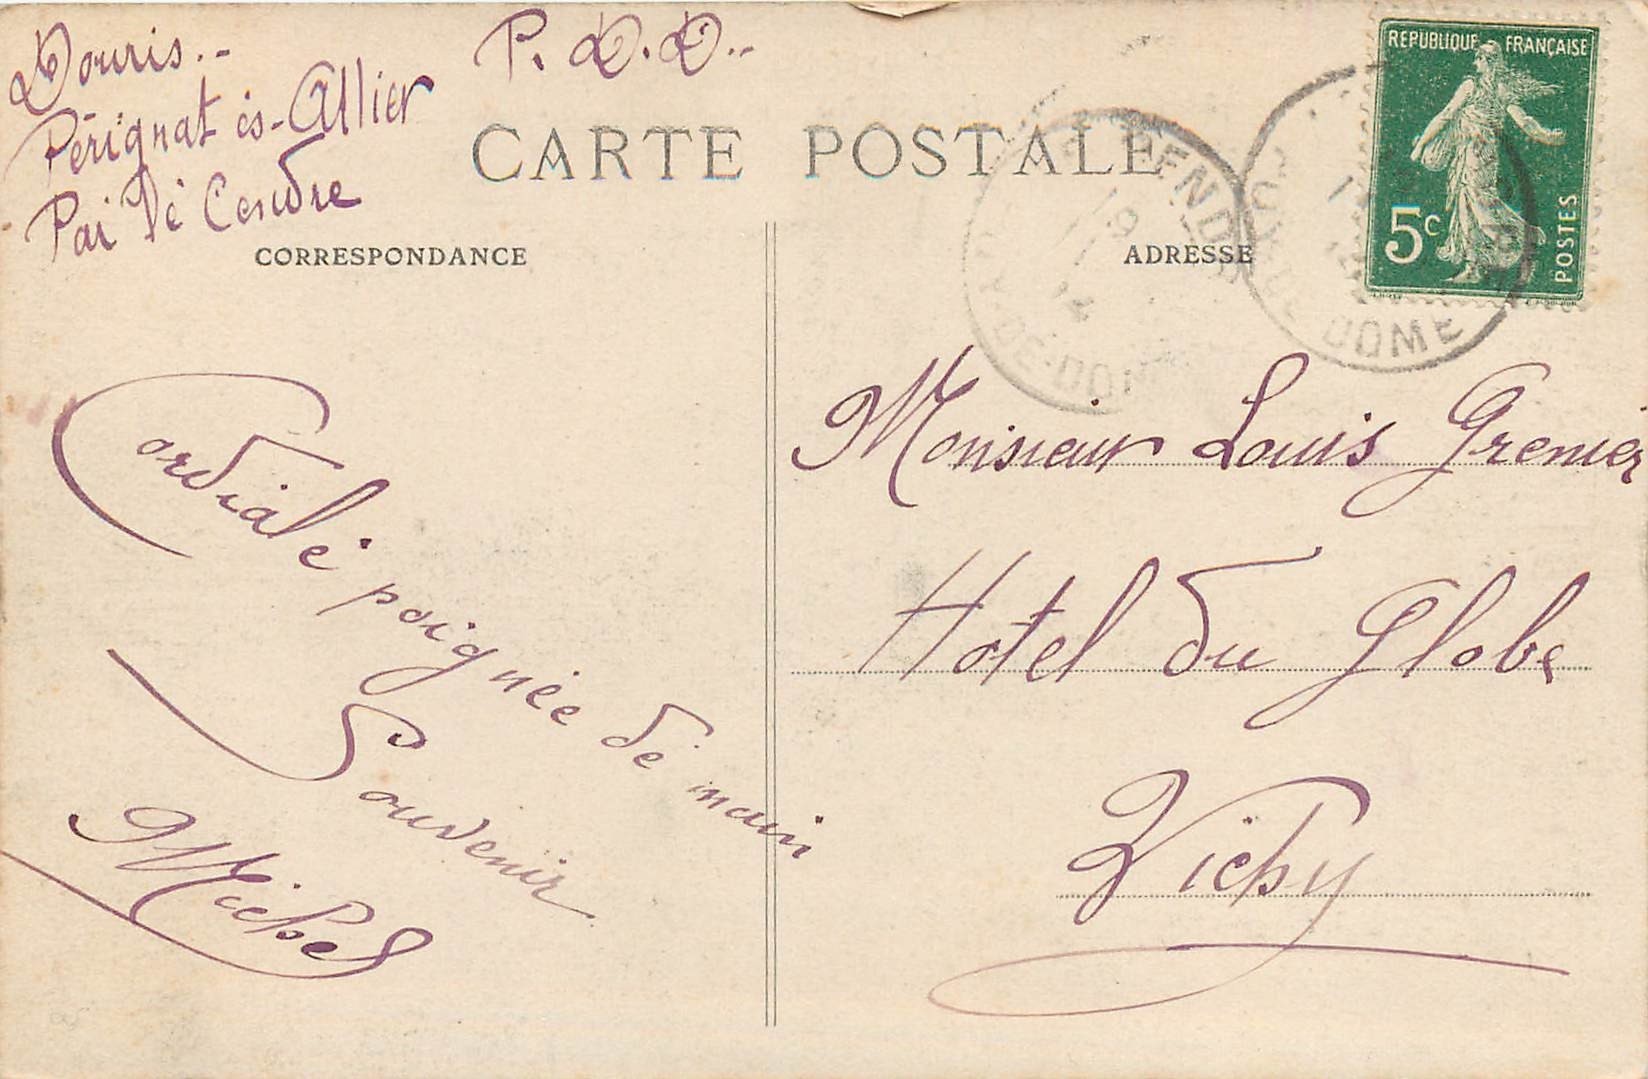 Douris.-
P. D. D..
Pérignat ès-Allier
Par Le Cendre
CARTE POSTALE
CORRESPONDANCE
ADRESSE
REPUBLIQUE FRANÇAISE
5c
POSTES
ENDR
19
14
Y-DE-DOM
DOME
Cordiale poignée de main
Souvenir
Michel
Monsieur Louis Grenier
Hotel du Globe
Vichy